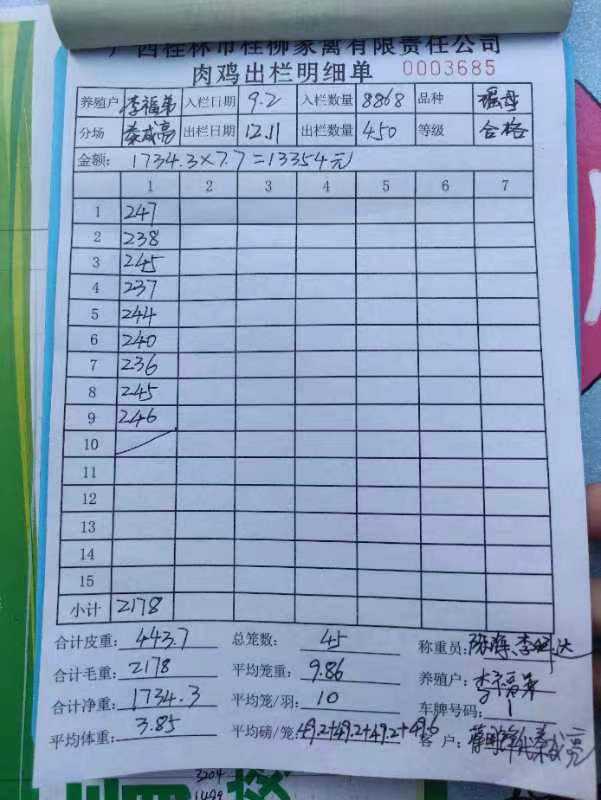 广西桂林市桂柳家禽有限责任公司
肉鸡出栏明细单 0003685
养殖户 李福弟 入栏日期 9.2 入栏数量 8868 品种
分场 秦成亮 出栏日期 12.11 出栏数量 450 等级 合格
金额: 1734.3×7.7=13354元
1 2 3 4 5 6 7
1 247
2 238
3 245
4 237
5 244
6 240
7 236
8 245
9 246
10
11
12
13
14
15
小计 2178
合计皮重: 443.7 总笼数: 45 称重员:
合计毛重: 2178 平均笼重: 9.86 养殖户: 李福弟
合计净重: 1734.3 平均笼/羽: 10 车牌号码: 1
平均体重: 3.85 平均磅/笼: 49.2+49.2+49.2+49.6 客户:
3204
1499